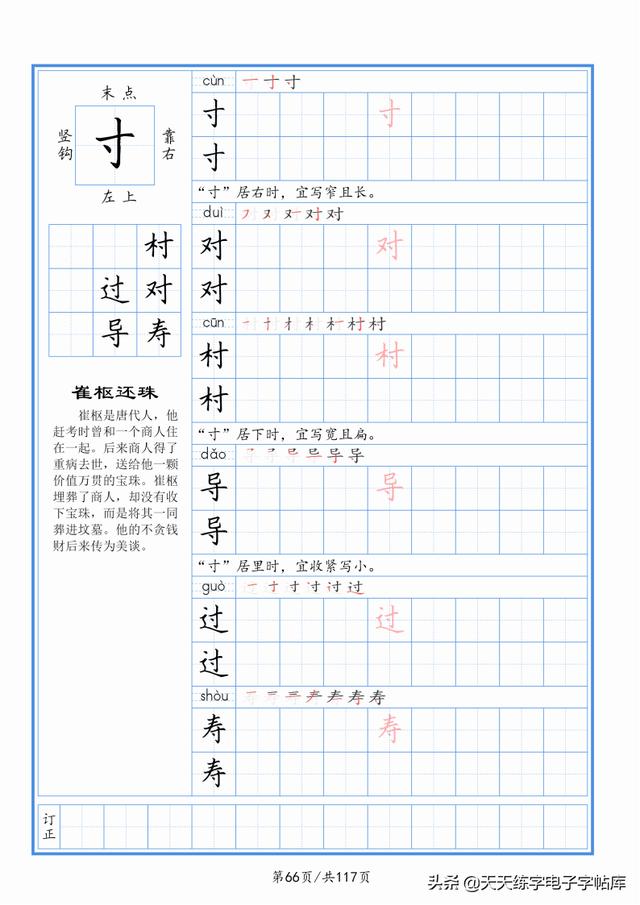 末点
竖钩
寸
靠右
左上
村
过对
导寿
崔枢还珠
崔枢是唐代人，他
赶考时曾和一个商人住
在一起。后来商人得了
重病去世，送给他一颗
价值万贯的宝珠。崔枢
埋葬了商人，却没有收
下宝珠，而是将其一同
葬进坟墓。他的不贪钱
财后来传为美谈。
cùn
寸 寸
寸
“寸”居右时，宜写窄且长。
duì
对 对
对
cūn
村 村
村
“寸”居下时，宜写宽且扁。
dǎo
导 导
导
“寸”居里时，宜收紧写小。
guò
过 过
过
shòu
寿 寿
寿
订正
第66页/共117页
头条 @天天练字电子字帖库